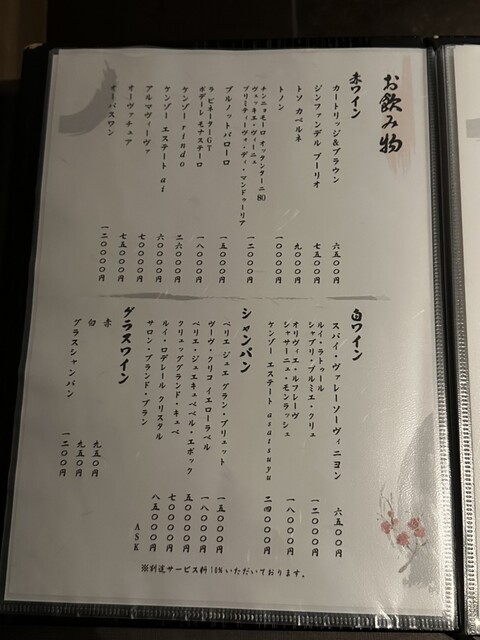 お飲み物
赤ワイン
カートリッジ&ブラウン 六五〇〇円
ジンファンデル プーリオ 七五〇〇円
トソ カベルネ 九〇〇〇円
トノン 一〇〇〇〇円
チンニョモーロ オッサンターニ 80
ヴェッキエ・ヴィーニュ
プリミティーヴォ・ディ・マンドゥーリア 一二〇〇〇円
ブルノット バローロ 一五〇〇〇円
ラ ピネーターGT
ポデーレ モナステーロ 一八〇〇〇円
ケンゾー rindo 二六〇〇〇円
ケンゾー エステート ai 六〇〇〇〇円
アルマヴィーヴァ 七〇〇〇〇円
オーヴァチュア 七五〇〇〇円
オーパスワン 一二〇〇〇〇円
白ワイン
スパイ・ヴァレーソーヴィニヨン 六五〇〇円
ルイ・ラトゥール
シャブリ・プルミエ・クリュ 一二〇〇〇円
オリヴィエ・ルフレーヴ
シャサーニュ・モンラッシェ 一八〇〇〇円
ケンゾー エステート asatsuyu 二四〇〇〇円
シャンパン
ペリエ ジュエ グラン・ブリュット 一五〇〇〇円
ヴーヴ・クリコ イエローラベル 一八〇〇〇円
ペリエ・ジュエキュベベル・エポック 五〇〇〇〇円
クリュッググランド・キュベ 七〇〇〇〇円
ルイ・ロデレール クリスタル 八五〇〇〇円
サロン・ブランド・ブラン ASK
グラスワイン
赤 九五〇円
白 九五〇円
グラスシャンパン 一二〇〇円
※別途サービス料10%いただいております。